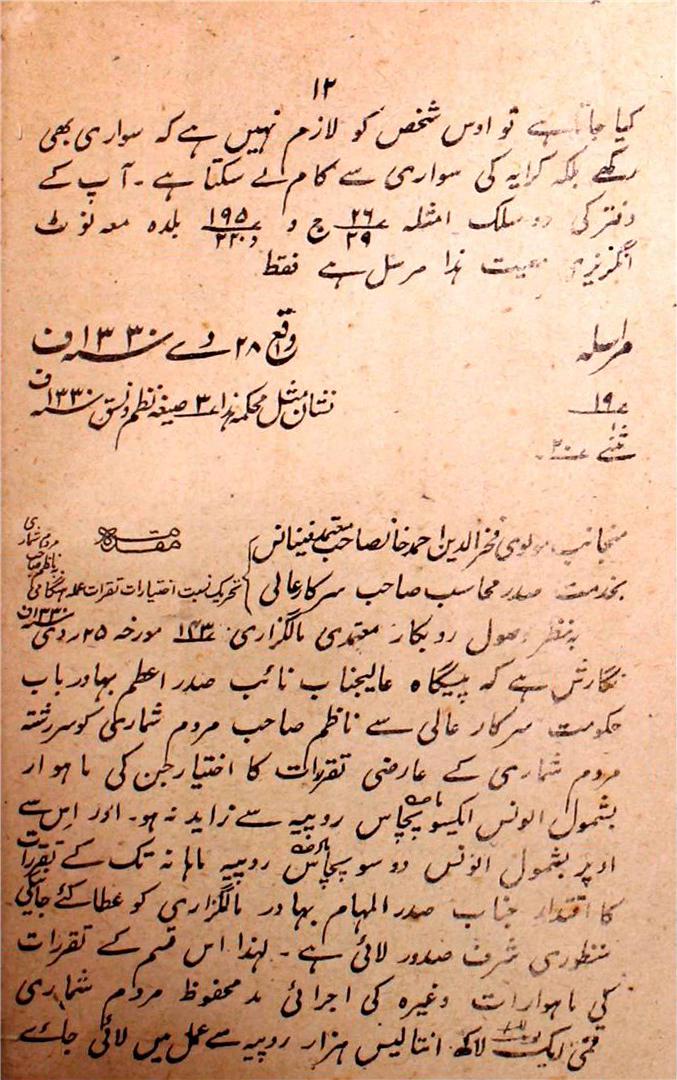 ۱۲
کیا جاتا ہے تو اوس شخص کو لازم نہیں ہے کہ سواری بھی
رکھے بلکہ کرایہ کی سواری سے کام لے سکتا ہے ۔ آپ کے
دفتر کی دو سلک امثلہ ۲۶/۲۹ ج و ۱۹۵/۲۲۰ بلدہ معہ نوٹ
انگریزی بمعیت ہذا مرسل ہے فقط
مراسلہ واقع ۲۸ دے ۱۳۳۰ف
۱۹ نشان مثل محکمہ ہذا ۳ صیغہ نظم و نسق ۱۳۳۰ف
۲۰
منجانب مولوی فخر الدین احمد خانصاحب معتمد فینانس مقدمہ
بخدمت صدر محاسب صاحب سرکار عالی تحریک نسبت اختیارات تقررات عملہ ہنگامی ناظم صاحب مردم شماری ۱۳۳۰ف
بہ نظر وصول روبکار معتمدی مالگزاری ۱۴۳ مورخہ ۲۵ دی
نگارش ہے کہ پیشگاہ عالیجناب نائب صدر اعظم بہادر باب
حکومت سرکار عالی سے ناظم صاحب مردم شماری کو سررشتہ
مردم شماری کے عارضی تقررات کا اختیار جن کی ماہوار
بشمول الونس ایکسو پچاس روپیہ سے زاید نہ ہو ۔ اور اس سے
اوپر بشمول الونس دو سو پچاس روپیہ ماہانہ تک کے تقررات
کا اقتدار جناب صدر المہام بہادر مالگزاری کو عطا کئے جانیکی
منظوری شرف صدور لائی ہے ۔ لہذا اس قسم کے تقررات
کی ماہوارات وغیرہ کی اجرائی مد محفوظ مردم شماری
رقمی ایک لاکھ انتالیس ہزار روپیہ سے عمل میں لائی جائے